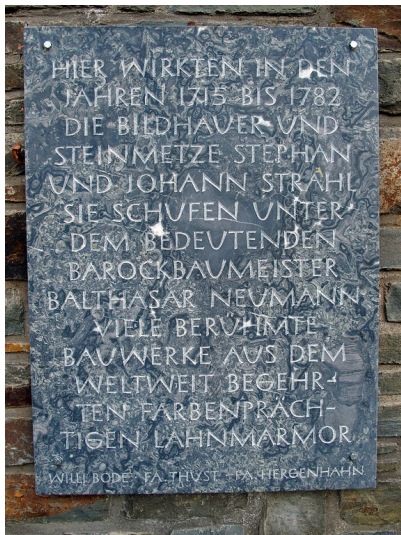 HIER WIRKTEN IN DEN
JAHREN 1715 BIS 1782
DIE BILDHAUER UND
STEINMETZE STEPHAN
UND JOHANN STRAHL
SIE SCHUFEN UNTER
DEM BEDEUTENDEN
BAROCKBAUMEISTER
BALTHASAR NEUMANN
VIELE BERÜHMTE
BAUWERKE AUS DEM
WELTWEIT BEGEHR-
TEN FARBENPRÄCH-
TIGEN LAHNMARMOR
WILLI BODE - FA. THUST - FA. HERGENHAHN